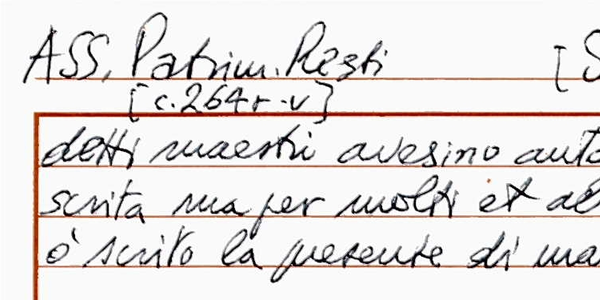 ASS, Patrim. Resti [S
[c.264r-v]
detti maestri avesino auto
scrita ma per molti et al
ò scrito la presente di ma